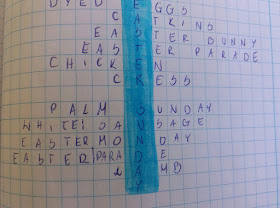 DYED EGGS
CATKINS
EASTER BUNNY
EASTER PARADE
CHICKEN
CRESS
PALM SUNDAY
WHITE SAUSAGE
EASTER MONDAY
EASTER PARADE
LAMB